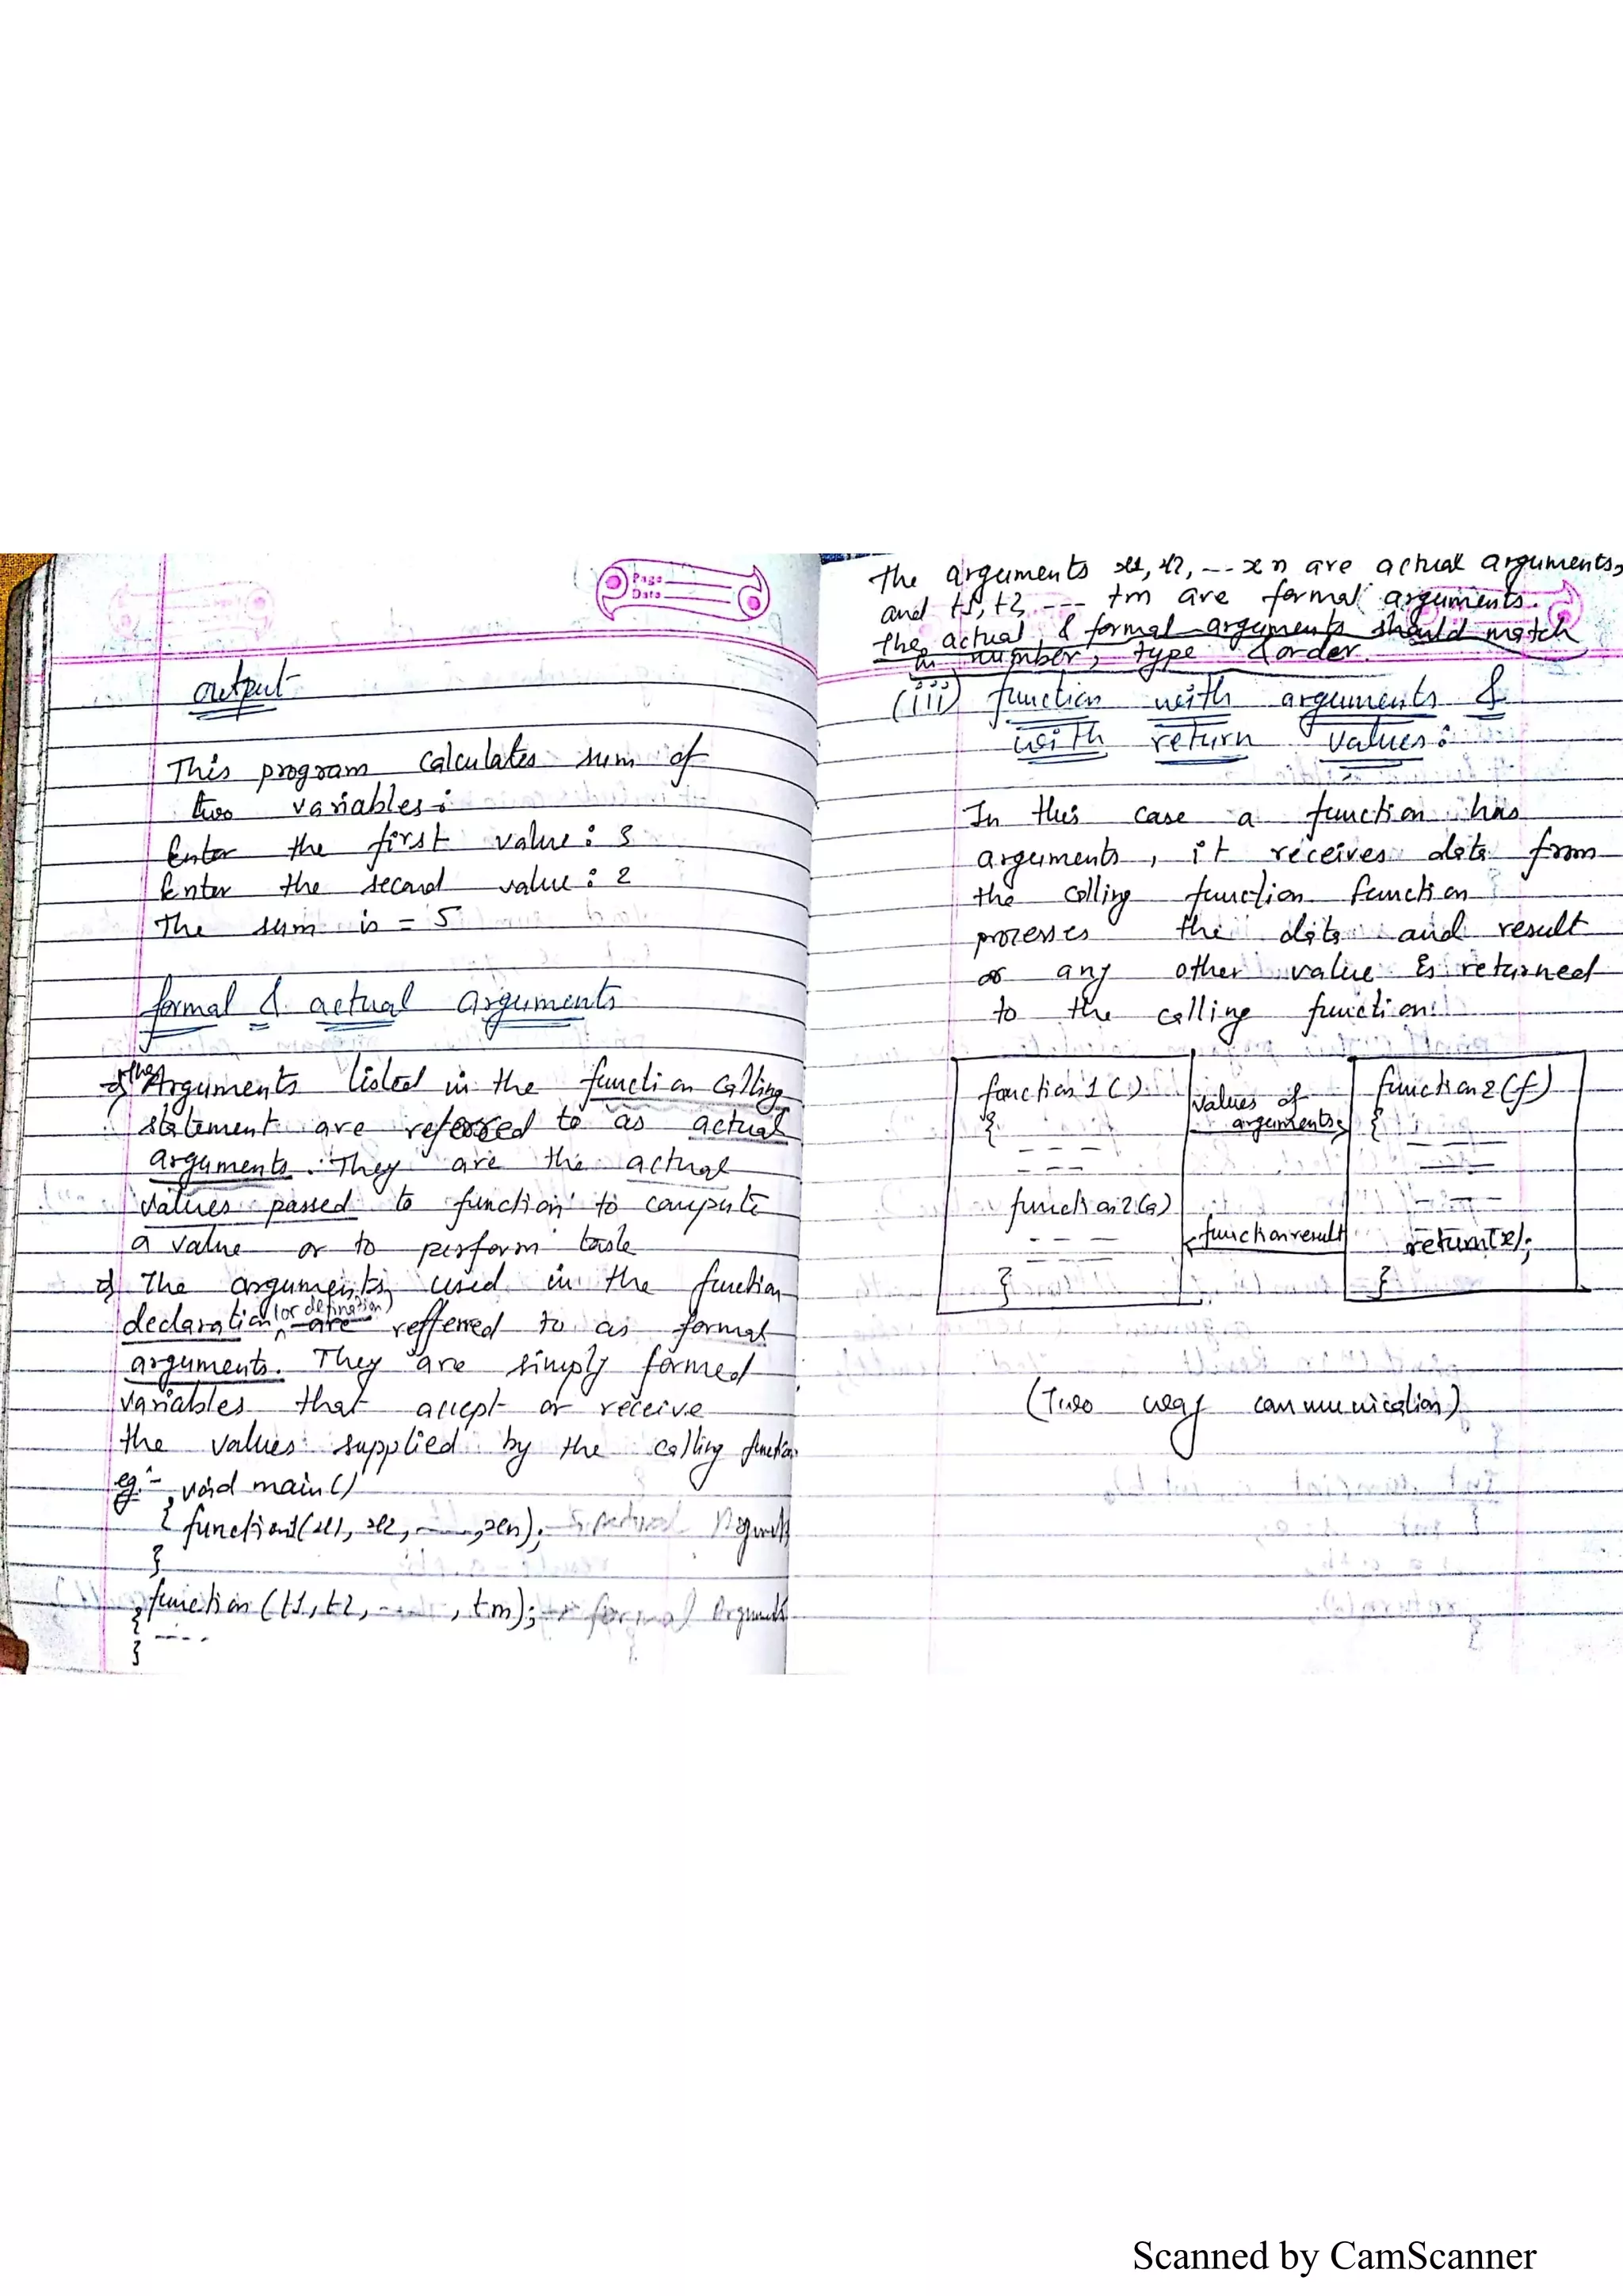 Page
Date
output
This program calculates sum of
two variables:
Enter the first value: 3
Enter the second value: 2
The sum is = 5
formal & actual arguments
The Arguments listed in the function calling
statement are referred to as actual
arguments. They are the actual
values passed to function to compute
a value or to perform task
The arguments used in the function
declaration (or defination) are refferred to as formal
arguments. They are simply formed
variables that accept or receive
the values supplied by the calling function
eg:- void main()
{ function1(x1, x2, ----, xn); → Actual Arguments
}
function (t1, t2, ----, tm); → formal Arguments
{ ----
}
The arguments x1, x2, --- xn are actual arguments,
and t1, t2, --- tm are formal arguments.
The actual & formal arguments should match
in number, type & order.
(iii) function with arguments &
with return values:
In this case a function has
arguments, it receives data from
the calling function function
processes the data and result
or any other value is returned
to the calling function.
function1() values of function2(f)
{ arguments {
function2(a)
function result return(x);
} }
(Two way communication)
Scanned by CamScanner